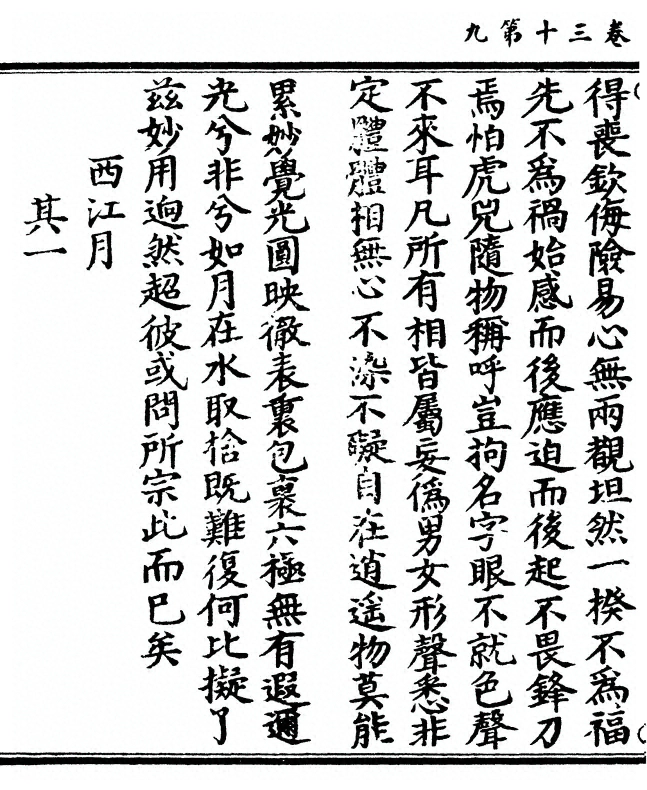 卷三十第九
得喪欽侮險易心無兩觀坦然一揆不爲福
先不爲禍始感而後應迫而後起不畏鋒刀
焉怕虎兕隨物稱呼豈拘名字眼不就色聲
不來耳凡所有相皆屬妄僞男女形聲悉非
定體體相無心不染不礙自在逍遥物莫能
累妙覺光圓映徹表裏包裹六極無有遐邇
光兮非兮如月在水取捨既難復何比擬了
兹妙用逈然超彼或問所宗此而巳矣
西江月
其一